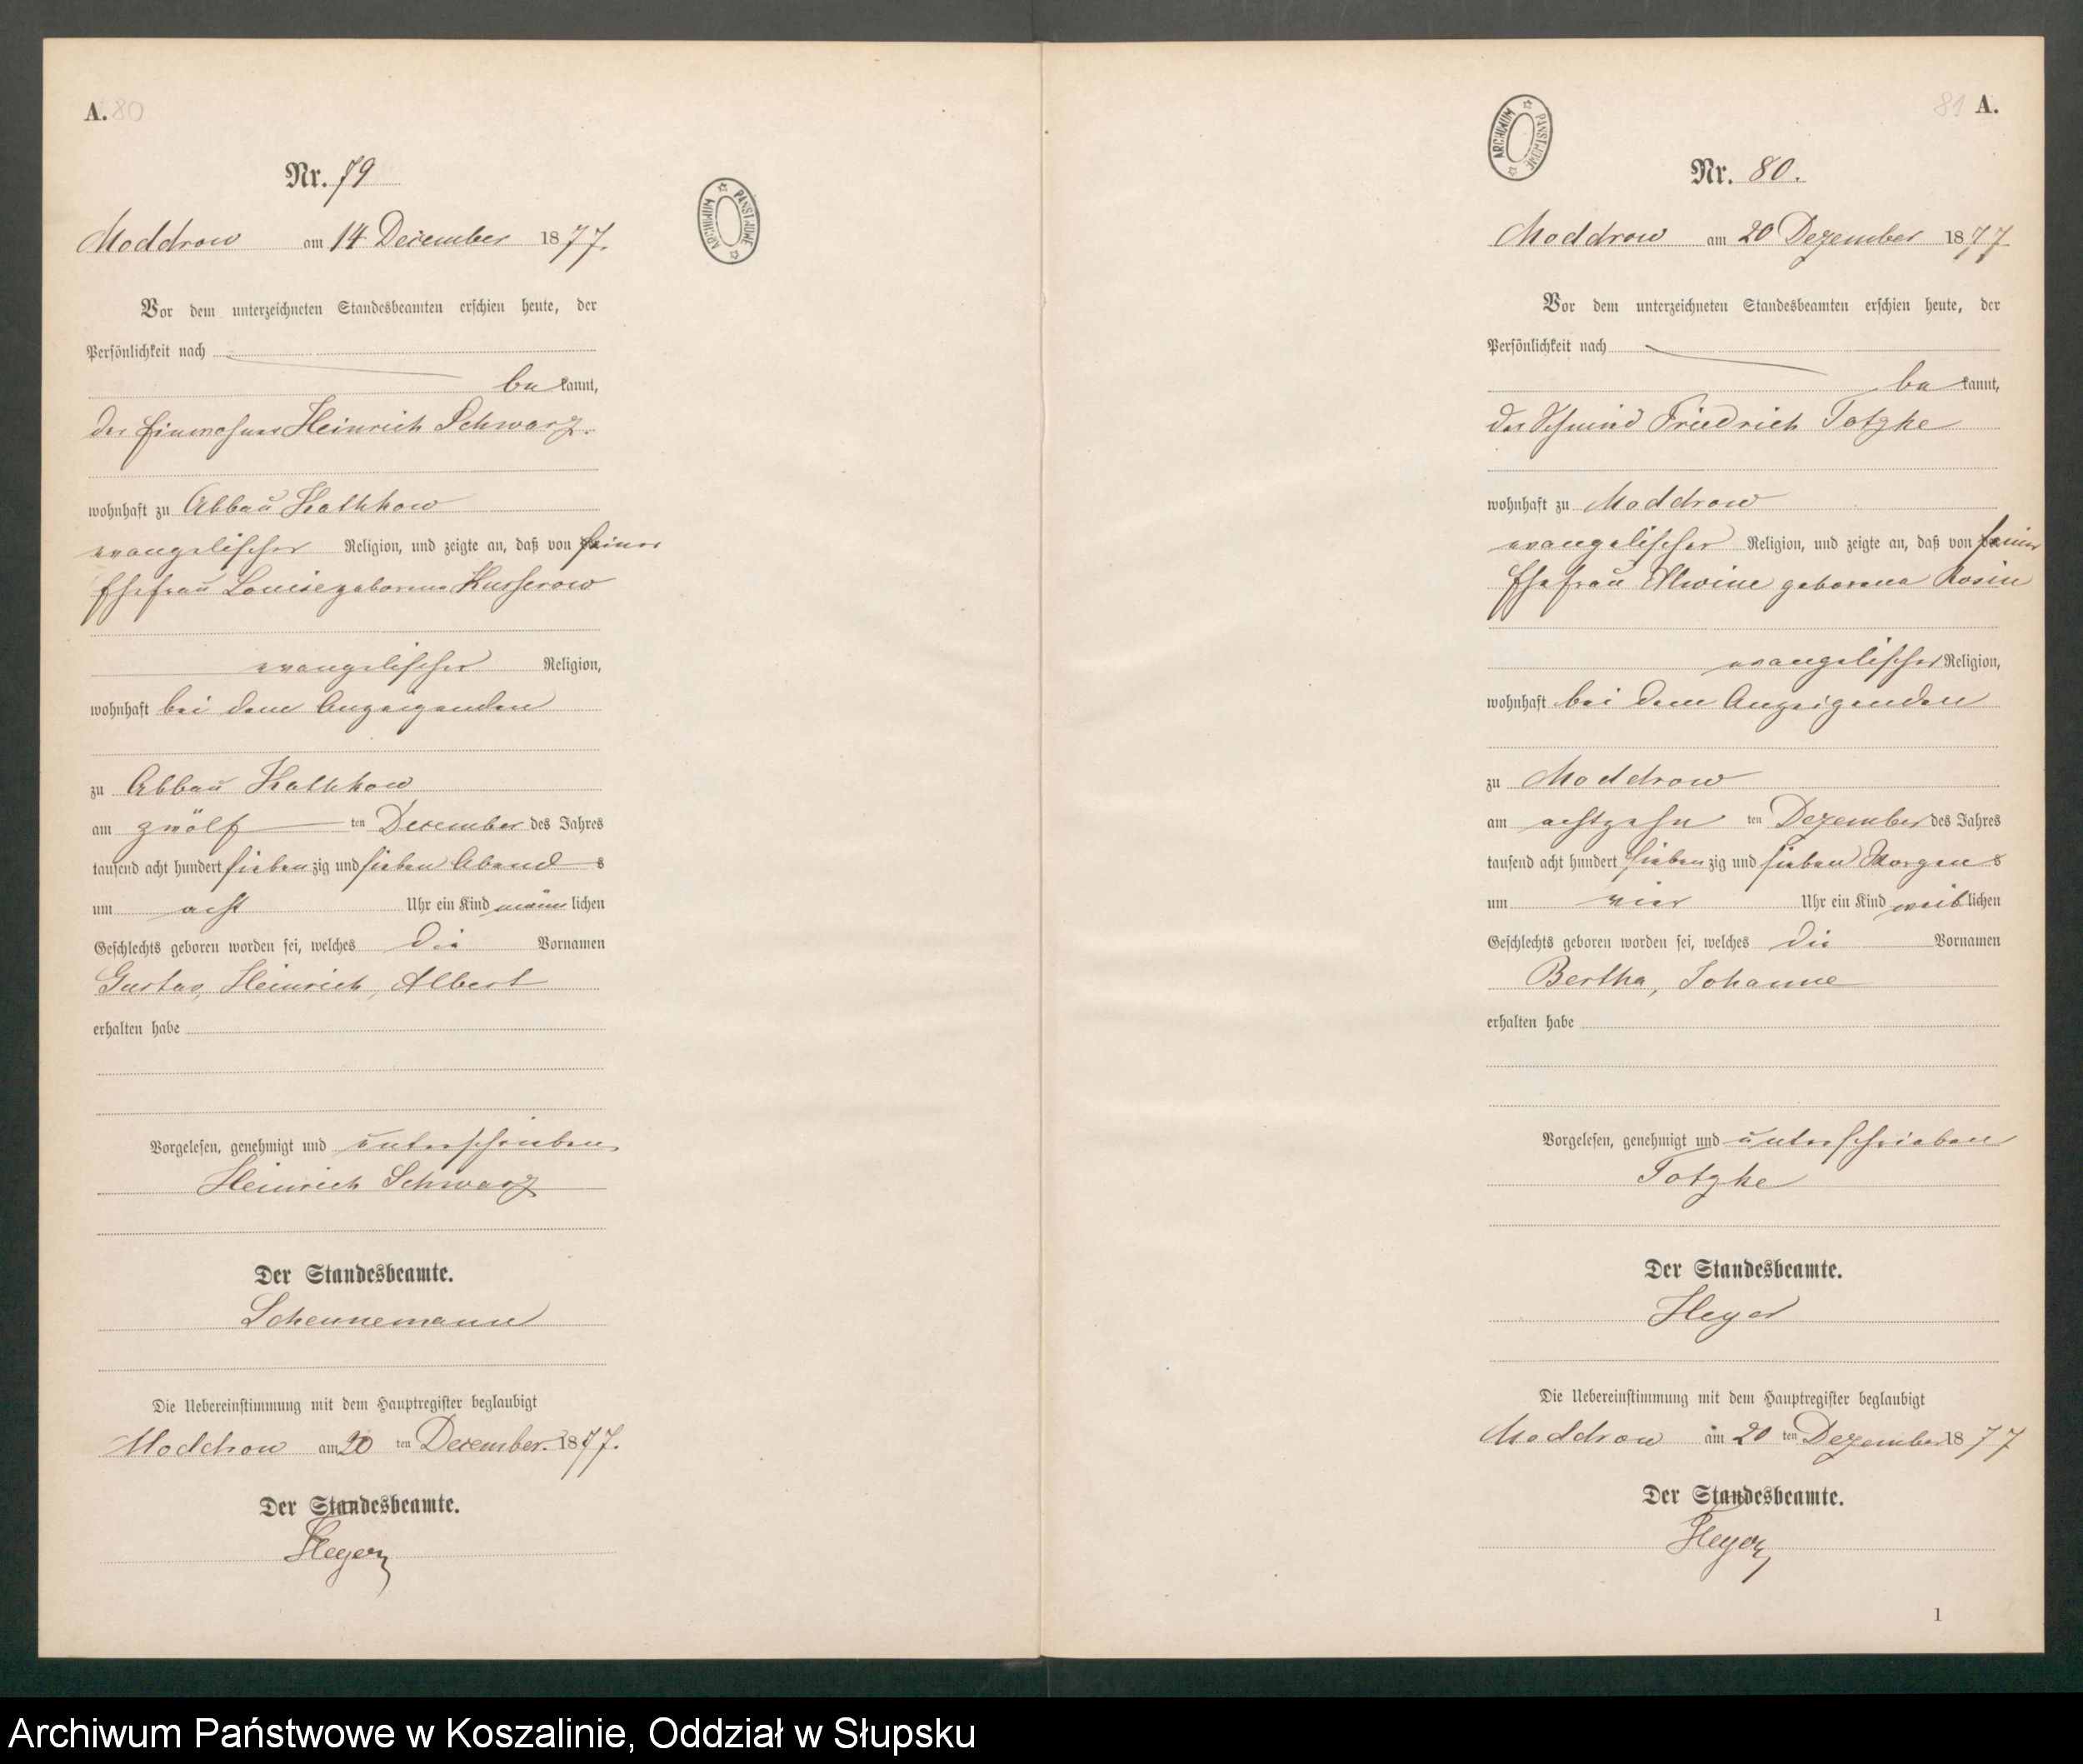 A. 80
Nr. 79
Moddrow am 14 December 1877.
Vor dem unterzeichneten Standesbeamten erschien heute, der
Persönlichkeit nach
be kannt,
der Einwohner Heinrich Schwarz.
wohnhaft zu Abbau Kathkow
evangelischer Religion, und zeigte an, daß von seiner
Ehefrau Louise geborene Kusserow
evangelischer Religion,
wohnhaft bei dem Anzeigenden
zu Abbau Kathkow
am zwölf ten December des Jahres
tausend acht hundert sieben zig und sieben Abend s
um acht Uhr ein Kind männ lichen
Geschlechts geboren worden sei, welches die Vornamen
Gustav, Heinrich, Albert
erhalten habe
Vorgelesen, genehmigt und unterschrieben
Heinrich Schwarz
Der Standesbeamte.
Scheunemann
Die Uebereinstimmung mit dem Hauptregister beglaubigt
Moddrow am 20 ten December. 1877.
Der Standesbeamte.
Heyer
ARCHIWUM PAŃSTWOWE
81 A.
ARCHIWUM PAŃSTWOWE
Nr. 80.
Moddrow am 20 Dezember 1877.
Vor dem unterzeichneten Standesbeamten erschien heute, der
Persönlichkeit nach
be kannt,
der Schmied Friedrich Totzke
wohnhaft zu Moddrow
evangelischer Religion, und zeigte an, daß von seiner
Ehefrau Alwine geborene Rosin
evangelischer Religion,
wohnhaft bei dem Anzeigenden
zu Moddrow
am achtzehn ten Dezember des Jahres
tausend acht hundert sieben zig und sieben Morgen s
um vier Uhr ein Kind weib lichen
Geschlechts geboren worden sei, welches die Vornamen
Bertha, Johanne
erhalten habe
Vorgelesen, genehmigt und unterschrieben
Totzke
Der Standesbeamte.
Heyer
Die Uebereinstimmung mit dem Hauptregister beglaubigt
Moddrow am 20 ten Dezember 1877
Der Standesbeamte.
Heyer
1
Archiwum Państwowe w Koszalinie, Oddział w Słupsku